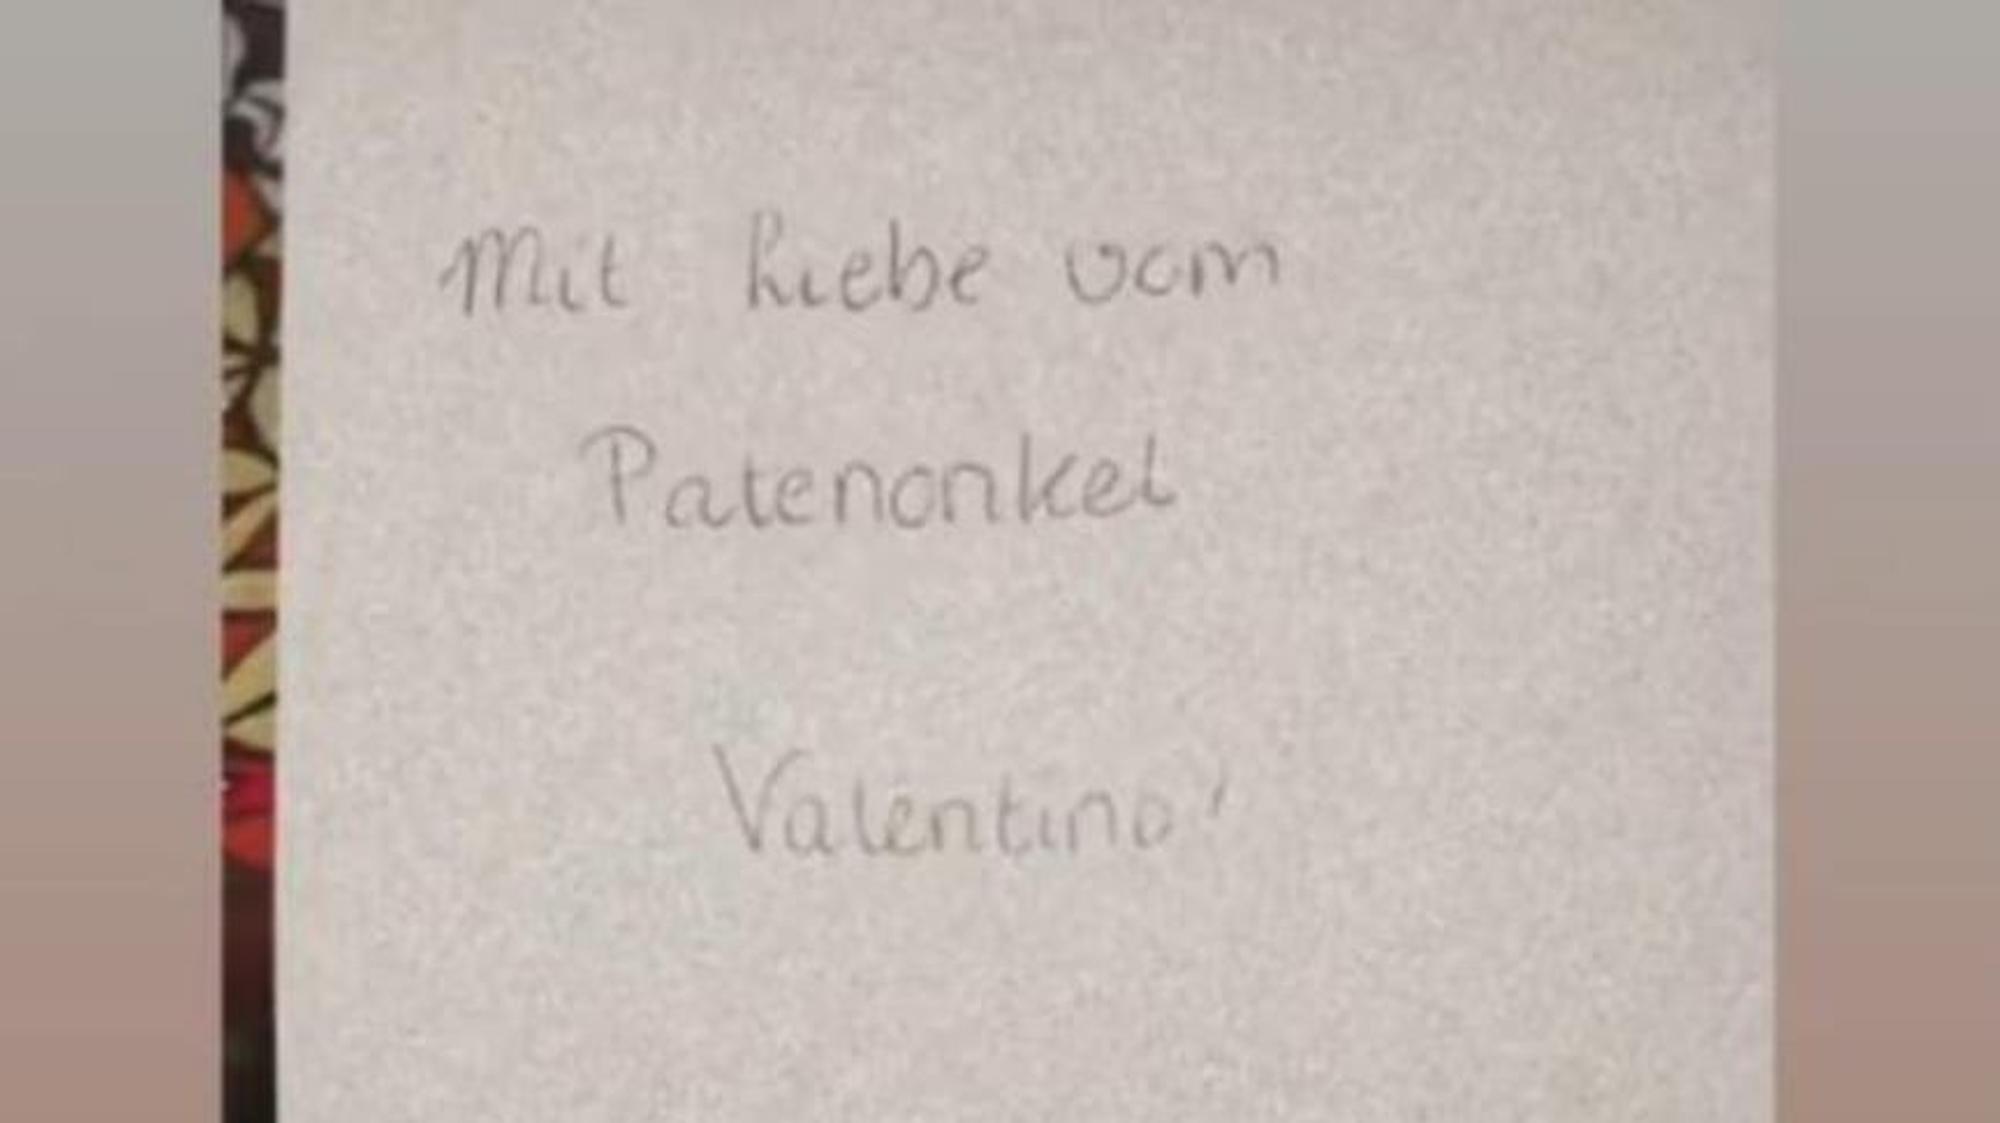 Mit Liebe vom
Patenonkel
Valentino!